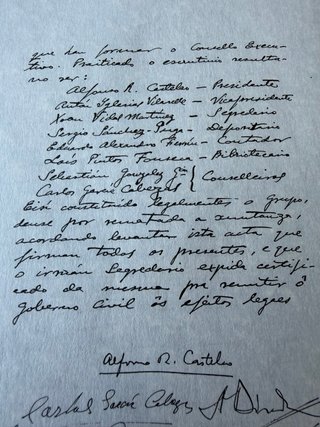 que han formar o Consello Execu-
tivo. Practicado o escrutinio resulta-
ron ser:
Alfonso R. Castelao – Presidente
Antón Iglesias Vilarelle – Vicepresidente
Xoan Vidal Martínez – Segredario
Sergio Sánchez – Depositario
Eduardo Alexandre – Contador
Luis Pintos Fonseca – Bibliotecario
Sebastián González
Carlos García Cabezas } Conselleiros
Eisí constituído legalmente o Grupo,
douse por rematada a xuntanza,
acordando levantar ista acta que
firman todos os presentes, e que
o irmán Segredario expida certifi-
cado da mesma pra remitir ô
Goberno Civil ôs efeitos legaes
Alfonso R. Castelao
Carlos García Cabezas